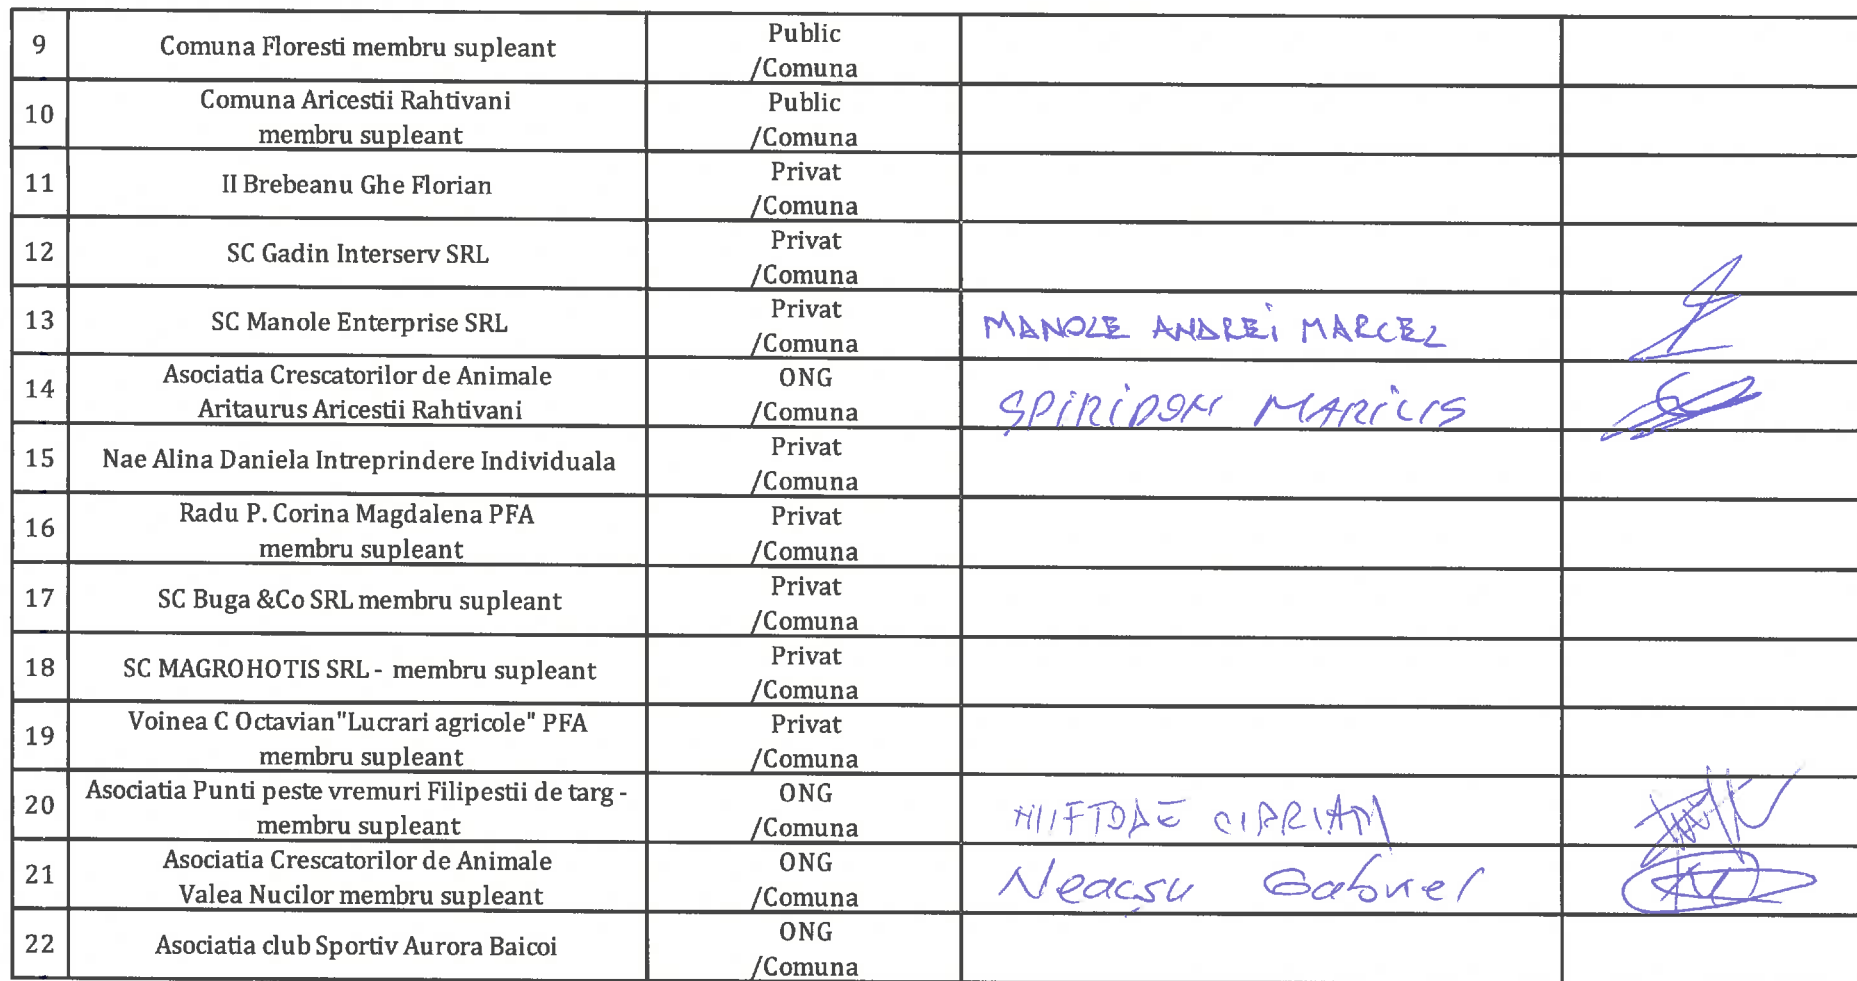 9
Comuna Floresti membru supleant
Public
/Comuna
10
Comuna Aricestii Rahtivani
membru supleant
Public
/Comuna
11
II Brebeanu Ghe Florian
Privat
/Comuna
12
SC Gadin Interserv SRL
Privat
/Comuna
13
SC Manole Enterprise SRL
Privat
/Comuna
MANOLE ANDREI MARCEL
14
Asociatia Crescatorilor de Animale
Aritaurus Aricestii Rahtivani
ONG
/Comuna
SPIRIDON MARIUS
15
Nae Alina Daniela Intreprindere Individuala
Privat
/Comuna
16
Radu P. Corina Magdalena PFA
membru supleant
Privat
/Comuna
17
SC Buga &Co SRL membru supleant
Privat
/Comuna
18
SC MAGROHOTIS SRL - membru supleant
Privat
/Comuna
19
Voinea C Octavian"Lucrari agricole" PFA
membru supleant
Privat
/Comuna
20
Asociatia Punti peste vremuri Filipestii de targ -
membru supleant
ONG
/Comuna
CIPRIAN
21
Asociatia Crescatorilor de Animale
Valea Nucilor membru supleant
ONG
/Comuna
Neacșu Gabriel
22
Asociatia club Sportiv Aurora Baicoi
ONG
/Comuna